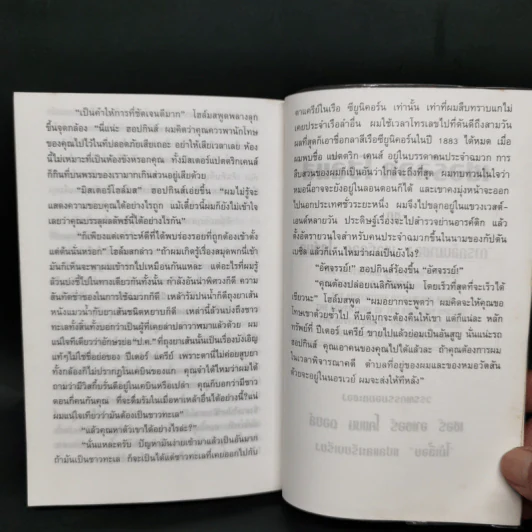 "เป็นคำให้การที่ชัดเจนดีมาก" โฮล์มสพูดพลางลุก
ขึ้นจุดกล้อง "นี่แน่ะ ฮอปกินส์ ผมคิดว่าคุณควรพานักโทษ
ของคุณไปไว้ในที่ปลอดภัยเสียเถอะ อย่าให้เสียเวลาเลย ห้อง
นี้ไม่เหมาะที่เป็นห้องขังหรอกคุณ ทั้งมิสเตอร์แปตตริกเคนส์
ก็กินที่บนพรมของเรามากเกินส่วนอยู่เสียด้วย
"มิสเตอร์โฮล์มส" ฮอปกินส์เอ่ยขึ้น "ผมไม่รู้จะ
แสดงความขอบคุณได้อย่างไรถูก แม้เดี๋ยวนี้ผมก็ยังไม่เข้าใจ
เลยว่าคุณบรรลุผลลัพธ์นี้ได้อย่างไรกัน"
"ก็เพียงแต่เคราะห์ดีที่ได้พบร่องรอยที่ถูกต้องเข้าตั้ง
แต่ต้นนั่นหรอก" โฮล์มสกล่าว "ถ้าผมเกิดรู้เรื่องสมุดพกนี่เข้า
มันก็เห็นจะพาผมเข้ารกไปเหมือนกันแหละ แต่อะไรที่ผมรู้
ล้วนบ่งชี้ไปในทางเดียวกันทั้งนั้น กำลังอันน่าพิศวงก็ดี ความ
สันทัดชำของในการใช้ฉมวกก็ดี เหล้ารัมปนน้ำก็ดีถุงยาเส้น
หนังแมวน้ำกับยาเส้นชนิดหยาบก็ดี เหล่านี้ล้วนบ่งถึงชาว
ทะเลทั้งสิ้นทั้งบอกว่าเป็นผู้ที่เคยล่าปลาวาฬมาแล้วด้วย ผม
แน่ใจทีเดียวว่าอักษรย่อ "ป.ค." ที่ถุงยาเส้นนั้นเป็นเรื่องบังเอิญ
แท้ๆไม่ใช่ชื่อย่อของ ปีเตอร์ แครีย์ เพราะตานี่ไม่ค่อยสูบยา
ทั้งกล้องก็ไม่ปรากฏในเคบินของแก คุณจำได้ไหมว่าผมได้
ถามว่ามีวิสกี้กับรันดีอยู่ในเคบินหรือเปล่า คุณก็บอกว่ามีชาว
ดอนกี่คนกันคุณ ที่จะดื่มรัมในเมื่อหาเหล้าอื่นได้อย่างนี้?แน่
ผมแน่ใจเทียวว่ามันต้องเป็นชาวทะเล"
"แล้วคุณหาตัวเขาได้อย่างไรล่ะ?"
"นั่นแหละครับ ปัญหามันง่ายเข้ามาแล้วเป็นอันมาก
ถ้ามันเป็นชาวทะเล ก็จะเป็นได้แต่ชาวทะเลที่เคยออกไปกับ
ตาแครีย์ในเรือ ซียูนิคอร์น เท่านั้น เท่าที่ผมสืบทราบแกไม่
เคยประจำเรือลำอื่น ผมใช้เวลาโทรเลขไปที่ดันดีถึงสามวัน
ผลที่สุดก็เอาชื่อกลาสีเรือซียูนิคอร์นในปี 1883 ได้หมด เมื่อ
ผมพบชื่อ แปตตริก เคนส์ อยู่ในบรรดาคนประจำฉมวก การ
สืบสวนของผมก็เป็นอันว่าใกล้จะถึงที่สุด ผมทบทวนในใจว่า
หมอนี่อาจจะยังอยู่ในลอนดอนก็ได้ และเขาคงมุ่งหน้าจะออก
ไปนอกประเทศชั่วระยะหนึ่ง ผมจึงไปขลุกอยู่ในแขวงเวสต์-
เอนด์หลายวัน ประดิษฐ์เรื่องจะไปสำรวจย่านอาร์คติก แล้ว
ตั้งอัตรายวนใจสำหรับคนประจำฉมวกขึ้นในนามของกัปตัน
เบซิล แล้วก็เห็นไหมว่าผลเป็นยังไง?
"อัศจรรย์!" ฮอปกินส์ร้องขึ้น "อัศจรรย์!"
"คุณต้องปล่อยเนลิกันหนุ่ม โดยเร็วที่สุดที่จะเร็วได้
เชียวนะ" โฮล์มสพูด "ผมอยากจะพูดว่า ผมคิดจะให้คุณขอ
โทษเขาด้วยซ้ำไป หีบดีบุกจะต้องคืนให้เขา แต่ก็แน่ละ หลัก
ทรัพย์ที่ ปีเตอร์ แครีย์ ขายไปแล้วย่อมเป็นอันสูญ นั่นแน่ะรถ
ฮอปกินส์ คุณเอาคนของคุณไปได้แล้วละ ถ้าคุณต้องการผม
ในเวลาพิจารณาคดี ตำบลที่อยู่ของผมและของหมอวัตสัน
ด้วยจะอยู่ในนอรเวย์ ผมจะส่งให้ทีหลัง"